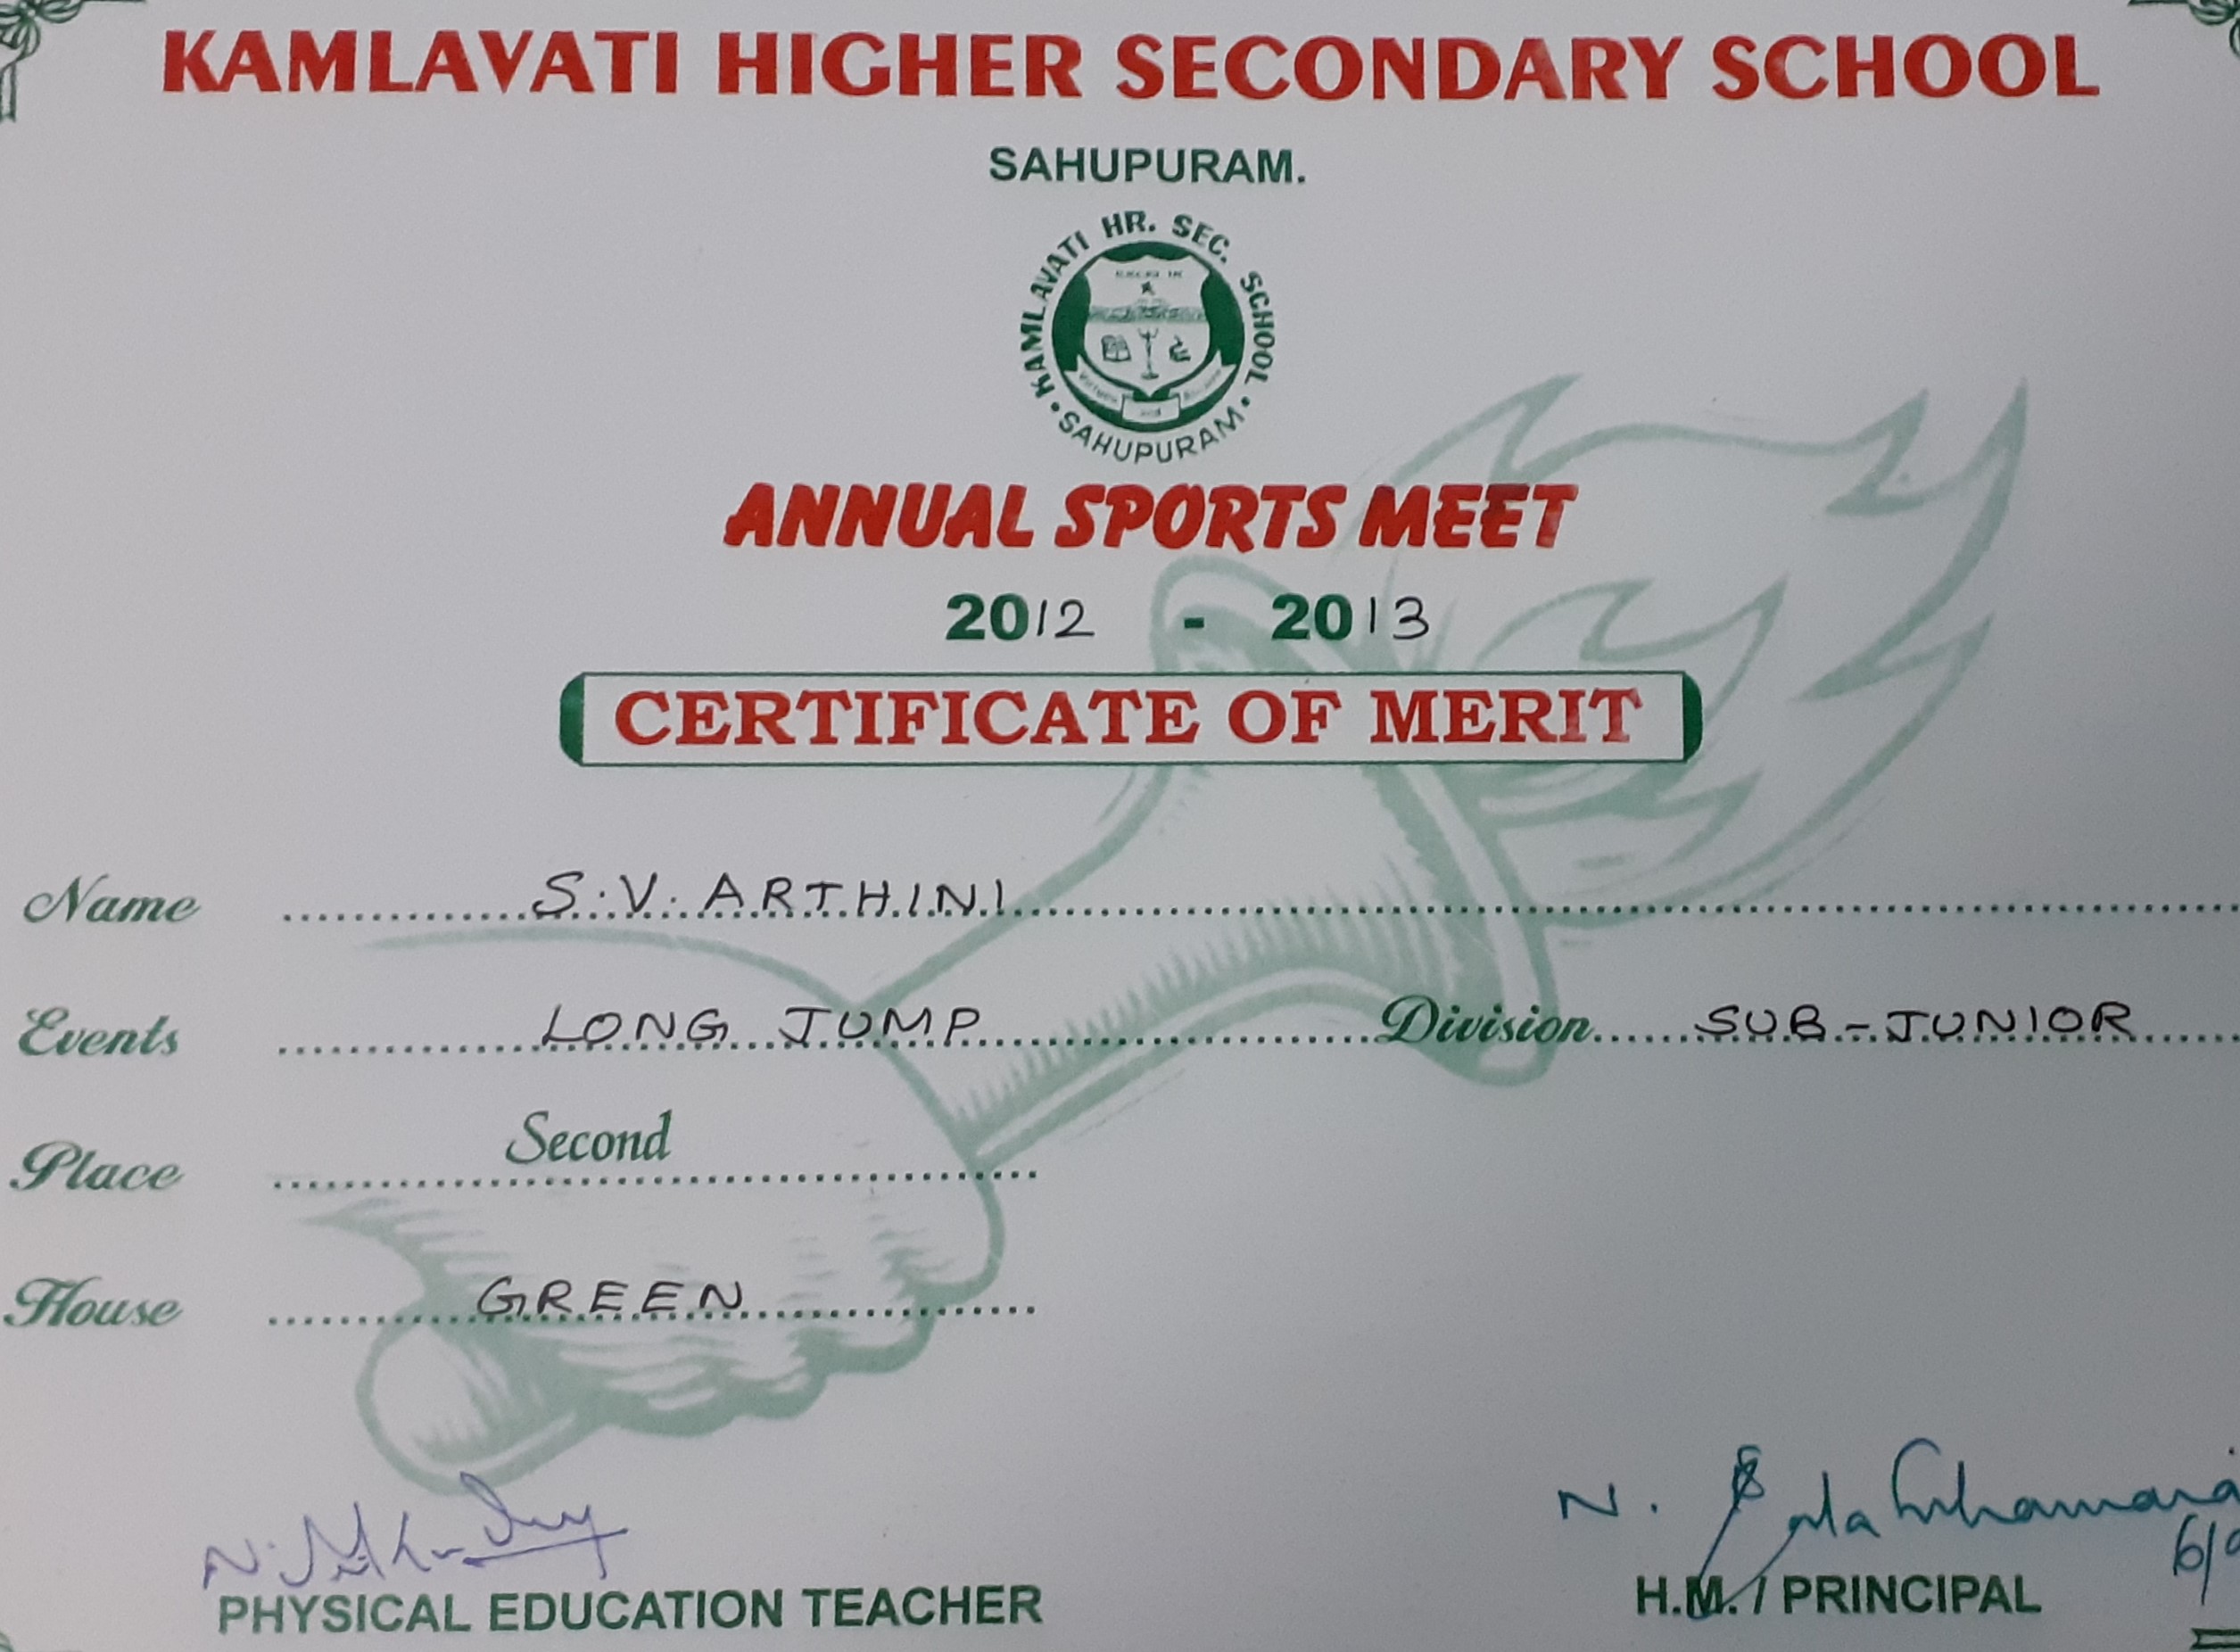 KAMLAVATI HIGHER SECONDARY SCHOOL
SAHUPURAM.
KAMLAVATI HR. SEC. SCHOOL
SAHUPURAM
ANNUAL SPORTS MEET
2012 - 2013
CERTIFICATE OF MERIT
Name S.V. ARTHINI
Events LONG JUMP Division SUB-JUNIOR
Place Second
House GREEN
N.
N.
PHYSICAL EDUCATION TEACHER H.M. / PRINCIPAL